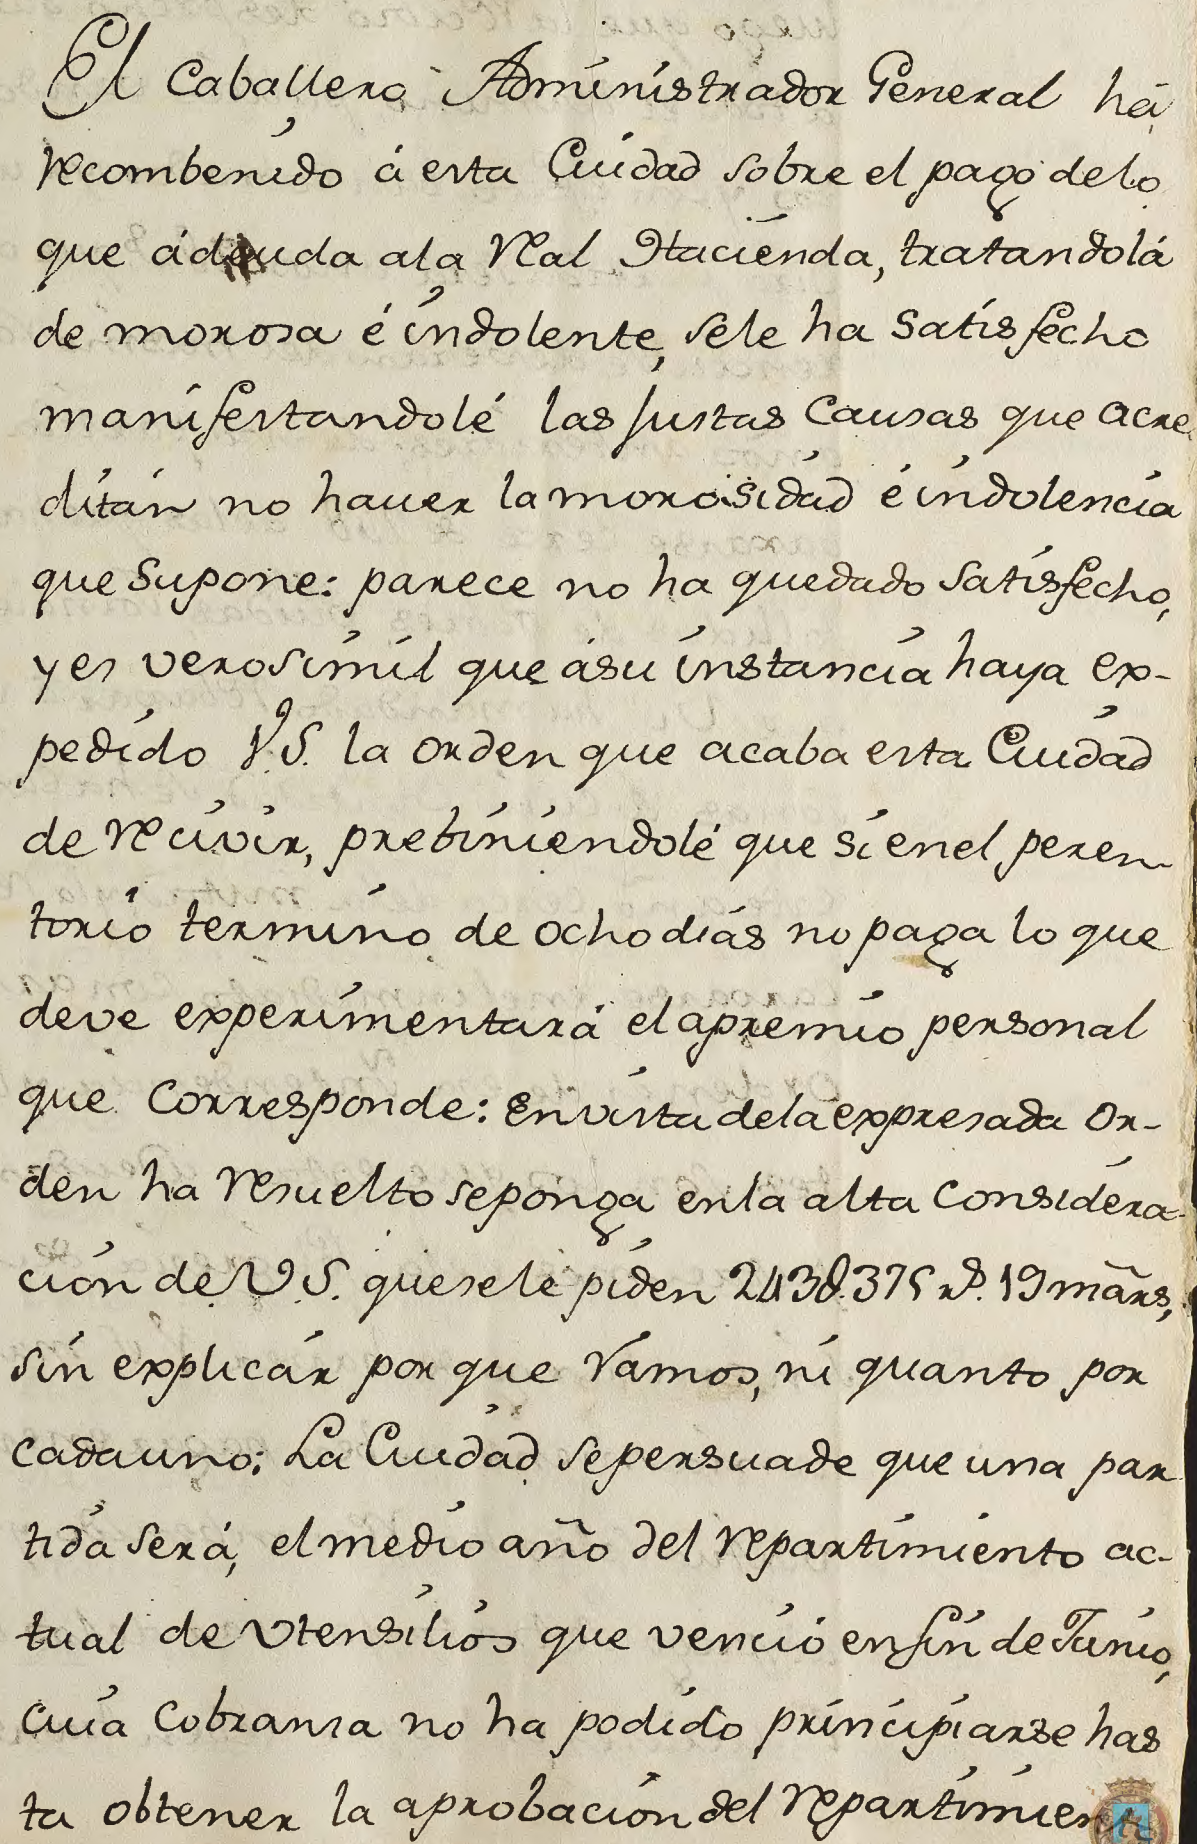 El Caballero Administrador General há
recombenido á esta Ciudad sobre el pago delo
que ádeuda ala Real Hacienda, tratandolá
de morosa é indolente, sele ha satisfecho
manifestandolé las justas Causas que acre
ditán no haver la morosidad é indolencia
que Supone: parece no ha quedado satisfecho,
y es verosimil que ásu instancia haya ex-
pedido V.S. la orden que acaba esta Ciudad
de recivir, prebiniendolé que si enel peren
torio termino de ocho diás no paga lo que
deve experimentará el apremio personal
que Corresponde: En vista dela expresada Or-
den ha resuelto seponga enla alta Considera-
ción de V.S. quesele piden 2438.375 rs. 19 mãrs,
sin explicár por que Ramos, ni quanto por
cada uno; La Ciudad sepersuade que una par
tida será, el medio año del repartimiento ac-
tual de Utensiliós que venció enfin de Junio,
cuia Cobranza no ha podido principiarse has
ta obtener la aprobación del repartimien